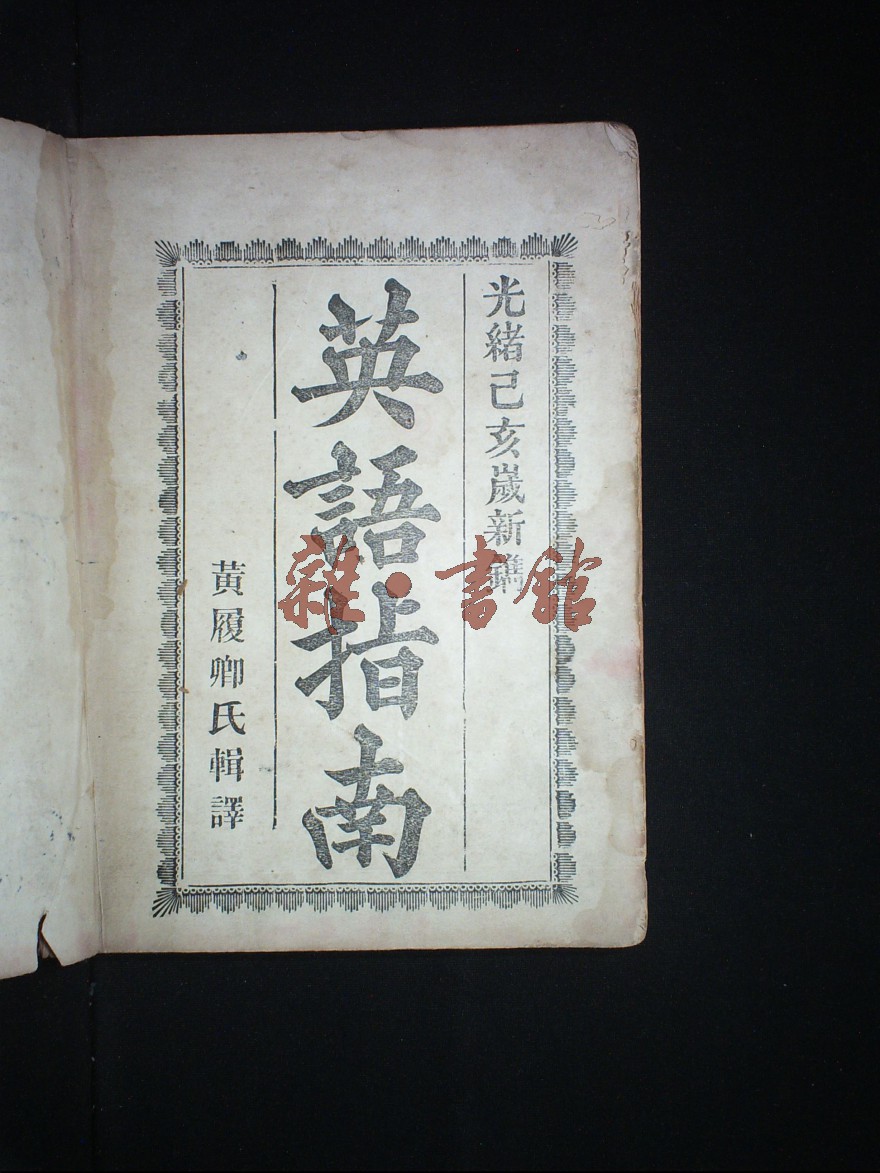 光緒己亥歲新鐫
英語指南
黃履卿氏輯譯
雜·書館